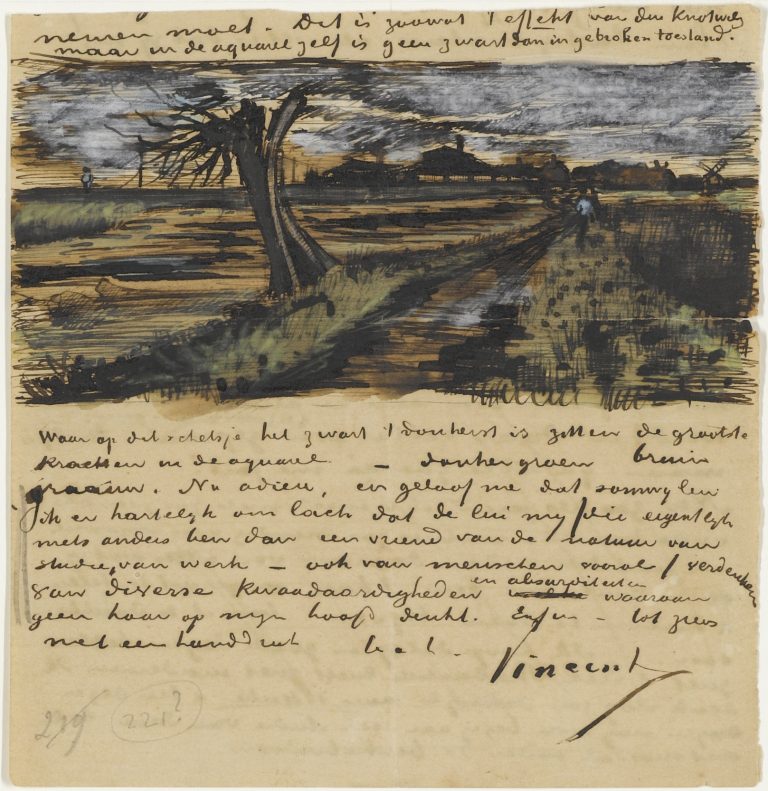 nemen moet. Dit is zoowat 't effekt van den Knotwilg
maar in de aquarel zelf is geen zwart dan in gebroken toestand.
Waar op dit schetsje het zwart 't donkerst is zitten de grootste
krachten in de aquarel – donkergroen bruin
graauw. Nu adieu, en geloof me dat somwylen
ik er hartelyk om lach dat de lui my (die eigentlyk
niets anders ben dan een vriend van de natuur van
studie, van werk – ook van menschen vooral) verdenken
van diverse kwaadaardigheden en absurditeiten waaraan
geen haar op myn hoofd denkt. Enfin – tot ziens
met een handdruk t. à t.
Vincent
219 221?